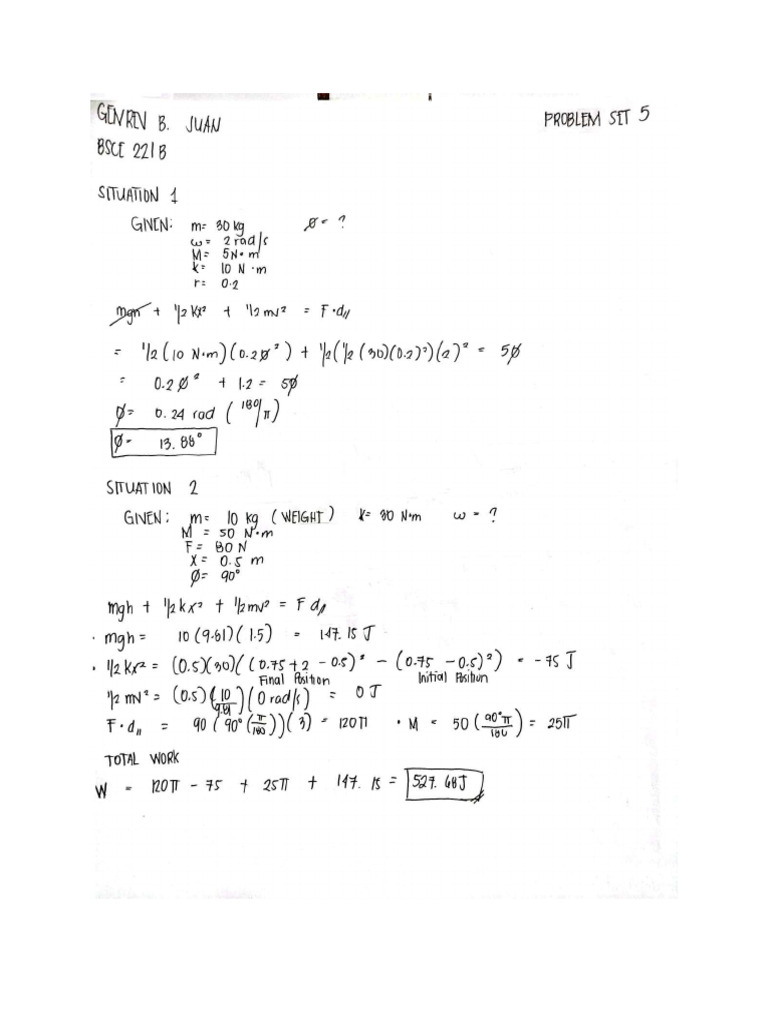 GENREN B. JUAN
PROBLEM SET 5
BSCE 221B
SITUATION 1
GIVEN: m= 30 kg ø = ?
ω = 2 rad/s
M= 5N•m
k= 10 N·m
r= 0.2
mgh + 1/2 kx² + 1/2 mv² = F·d//
= 1/2 (10 N·m)(0.2ø²) + 1/2(1/2 (30)(0.2)²)(2)² = 5ø
= 0.2ø² + 1.2 = 5ø
ø= 0.24 rad (180/π)
ø= 13.88°
SITUATION 2
GIVEN: m= 10 kg (WEIGHT) k= 30 N•m ω = ?
M = 50 N•m
F= 80 N
x= 0.5 m
ø= 90°
mgh + 1/2 kx² + 1/2 mv² = F d//
· mgh = 10 (9.81)(1.5) = 147.15 J
· 1/2 kx² = (0.5)(30)((0.75+2-0.5)² - (0.75-0.5)²) = -75 J
Final Position Initial Position
1/2 mv² = (0.5)(10/9.81)(0 rad/s) = 0 J
F·d// = 90 (90°(π/180))(3) = 120π · M = 50 (90°π/180) = 25π
TOTAL WORK
W = 120π - 75 + 25π + 147.15 = 527.68J